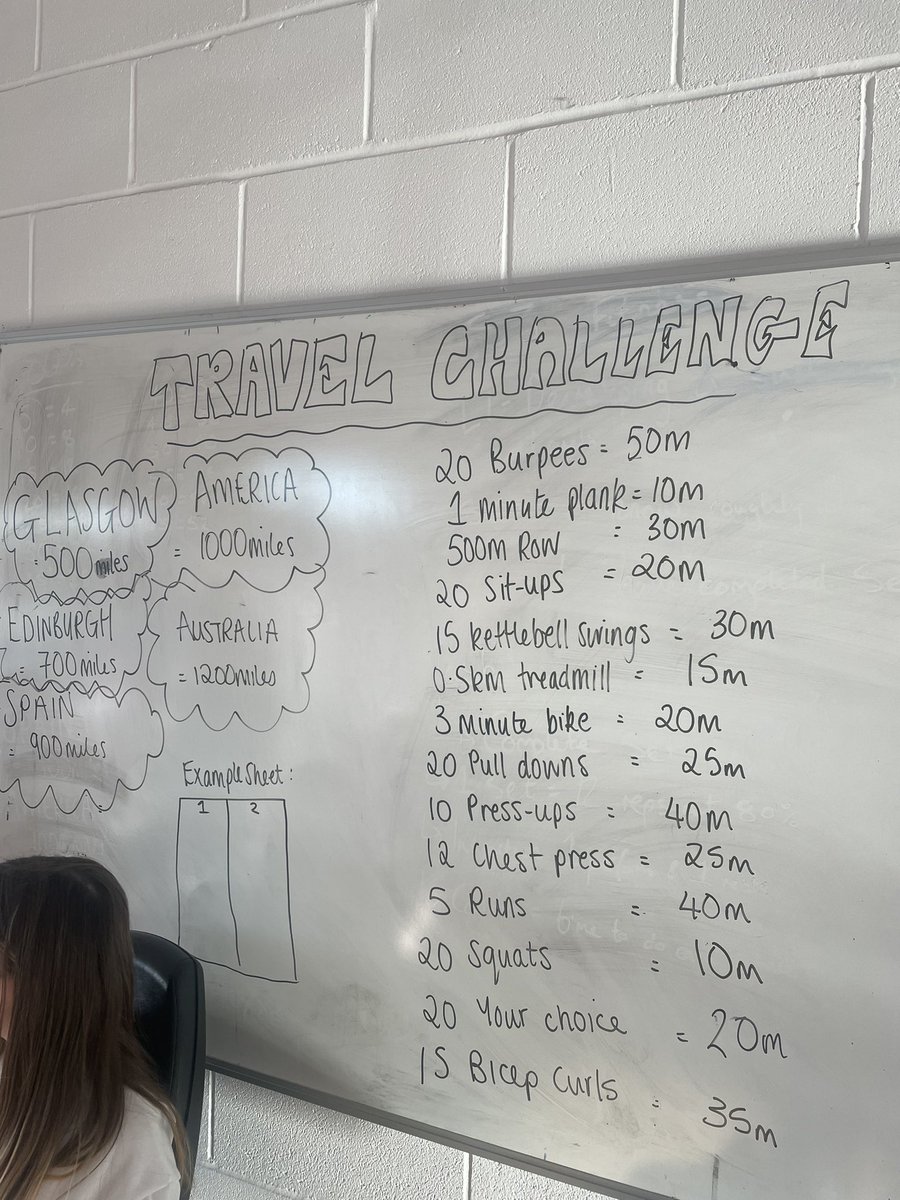 TRAVEL CHALLENGE
GLASGOW
= 500 miles
AMERICA
= 1000 miles
EDINBURGH
= 700 miles
AUSTRALIA
= 1200 miles
SPAIN
= 900 miles
Example Sheet:
1 2
20 Burpees = 50m
1 minute plank = 10m
500m Row = 30m
20 Sit-ups = 20m
15 kettlebell swings = 30m
0.5km treadmill = 15m
3 minute bike = 20m
20 Pull downs = 25m
10 Press-ups = 40m
12 Chest press = 25m
5 Runs = 40m
20 Squats = 10m
20 Your choice = 20m
15 Bicep Curls = 35m